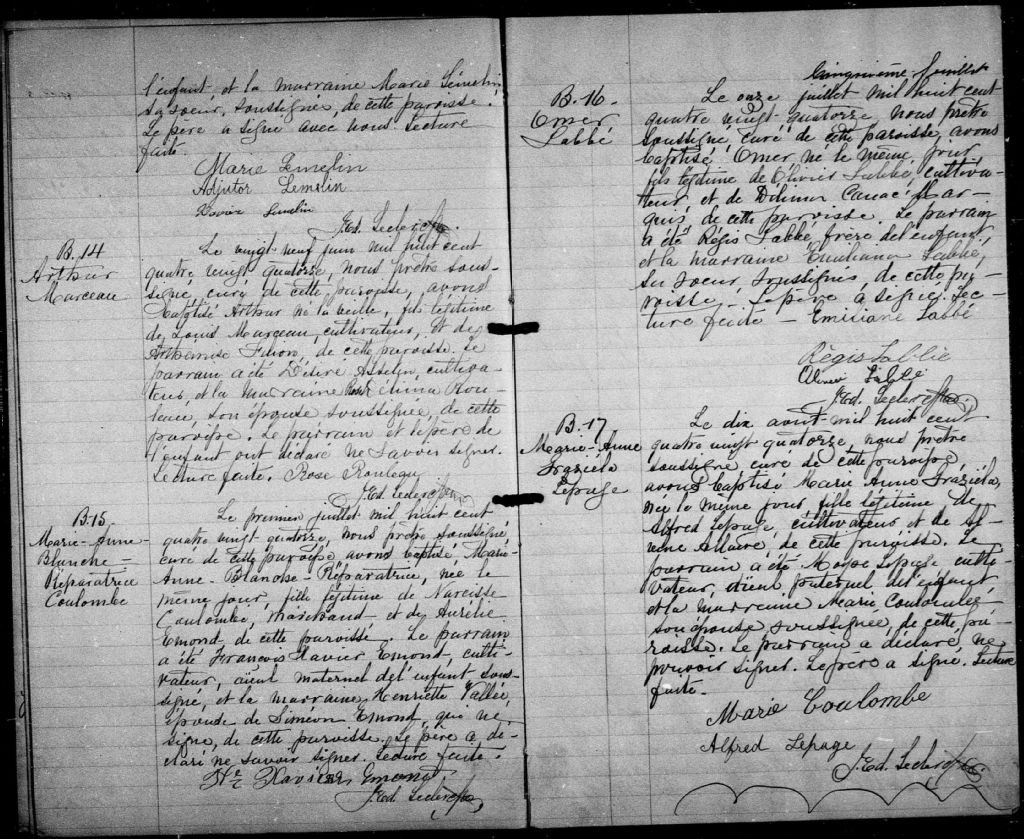 l'enfant et la marraine Marie Lémelin
sa soeur, soussignée, de cette paroisse.
Le père a signé avec nous. Lecture
faite.
Marie Lemelin
Adjutor Lemelin
Xavier Lemelin
J. Ed. Leclerc Ptre.
B. 14
Arthur
Marceau
Le vingt neuf juin mil huit cent
quatre vingt quatorze, nous prêtre sous-
signé, curé de cette paroisse, avons
baptisé Arthur né la veille, fils légitime
de Louis Marceau, cultivateur, et de
Arthemise Simon, de cette paroisse. Le
parrain a été Désiré Asselin, cultiva-
teur, et la marraine Rose Rou-
leau, son épouse soussignée, de cette
paroisse. Le parrain et le père de
l'enfant ont déclaré ne savoir signer.
Lecture faite. Rose Rouleau
J. Ed. Leclerc Ptre
B. 15
Marie-Anne-
Blanche-
Réparatrice
Coulombe
Le premier juillet mil huit cent
quatre vingt quatorze, nous prêtre soussigné,
curé de cette paroisse avons baptisé Marie-
Anne-Blanche-Réparatrice, née le
même jour, fille légitime de Narcisse
Coulombe, marchand, et de Aurélie
Emond de cette paroisse. Le parrain
a été François Xavier Emond, culti-
vateur, aïeul maternel de l'enfant sous-
signé, et la marraine Henriette Vallée,
épouse de Siméon Emond, qui ne
signe, de cette paroisse. Le père a dé-
claré ne savoir signer. Lecture faite.
Xavier Emond
J. Ed. Leclerc Ptre
Cinquième feuillet
B. 16.
Omer
Labbé
Le onze juillet mil huit cent
quatre vingt quatorze, nous prêtre
soussigné, curé de cette paroisse, avons
baptisé Omer né le même jour
fils légitime de Olivier Labbé, cultiva-
teur et de Délima Canac-Mar-
quis de cette paroisse. Le parrain
a été Régis Labbé, frère de l'enfant,
et la marraine Emiliana Labbé,
sa soeur, soussignés, de cette pa-
roisse. Le père a signé. Lec-
ture faite - Emiliane Labbé
Régis Labbé
Olivier Labbé
J. Ed. Leclerc Ptre.
B. 17
Marie-Anne
Graziela
Lepage
Le dix août mil huit cent
quatre vingt quatorze, nous prêtre
soussigné curé de cette paroisse,
avons baptisé Marie Anne Graziela,
née le même jour fille légitime de
Alfred Lepage, cultivateur et de
Allaire, de cette paroisse. Le
parrain a été Moïse Lepage culti-
vateur, aïeul paternel de l'enfant
et la marraine Marie Coulombe
son épouse soussignée, de cette pa-
roisse. Le parrain a déclaré ne
pouvoir signer. Le père a signé. Lecture
faite.
Marie Coulombe
Alfred Lepage
J. Ed. Leclerc Ptre.